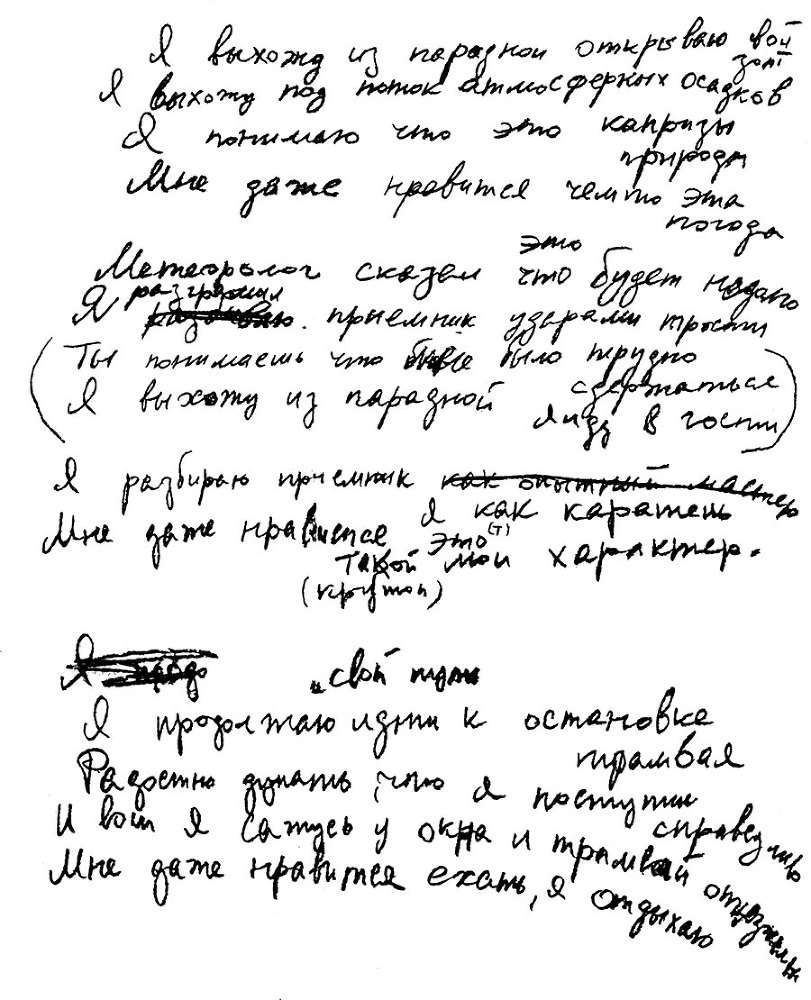 Я выхожу из парадной открываю свой зонт
Я выхожу под поток атмосферных осадков
Я понимаю что это капризы природы
Мне даже нравится чем то эта погода
это
Метеоролог сказал что будет надо
разгромил
Я приемник ударами трости
(Ты понимаешь что мне было трудно сдержаться
Я выхожу из парадной я иду в гости)
Я разбираю приемник как опытный мастер
Я как каратень
Мне даже нравится это(т)
такой мой характер.
(крутой)
Я продо
свой путь
Я продолжаю идти к остановке трамвая
Радостно думать, что я поступил справедливо
И вот я сажусь у окна и трамвай отъезжает
Мне даже нравится ехать, я отдыхаю